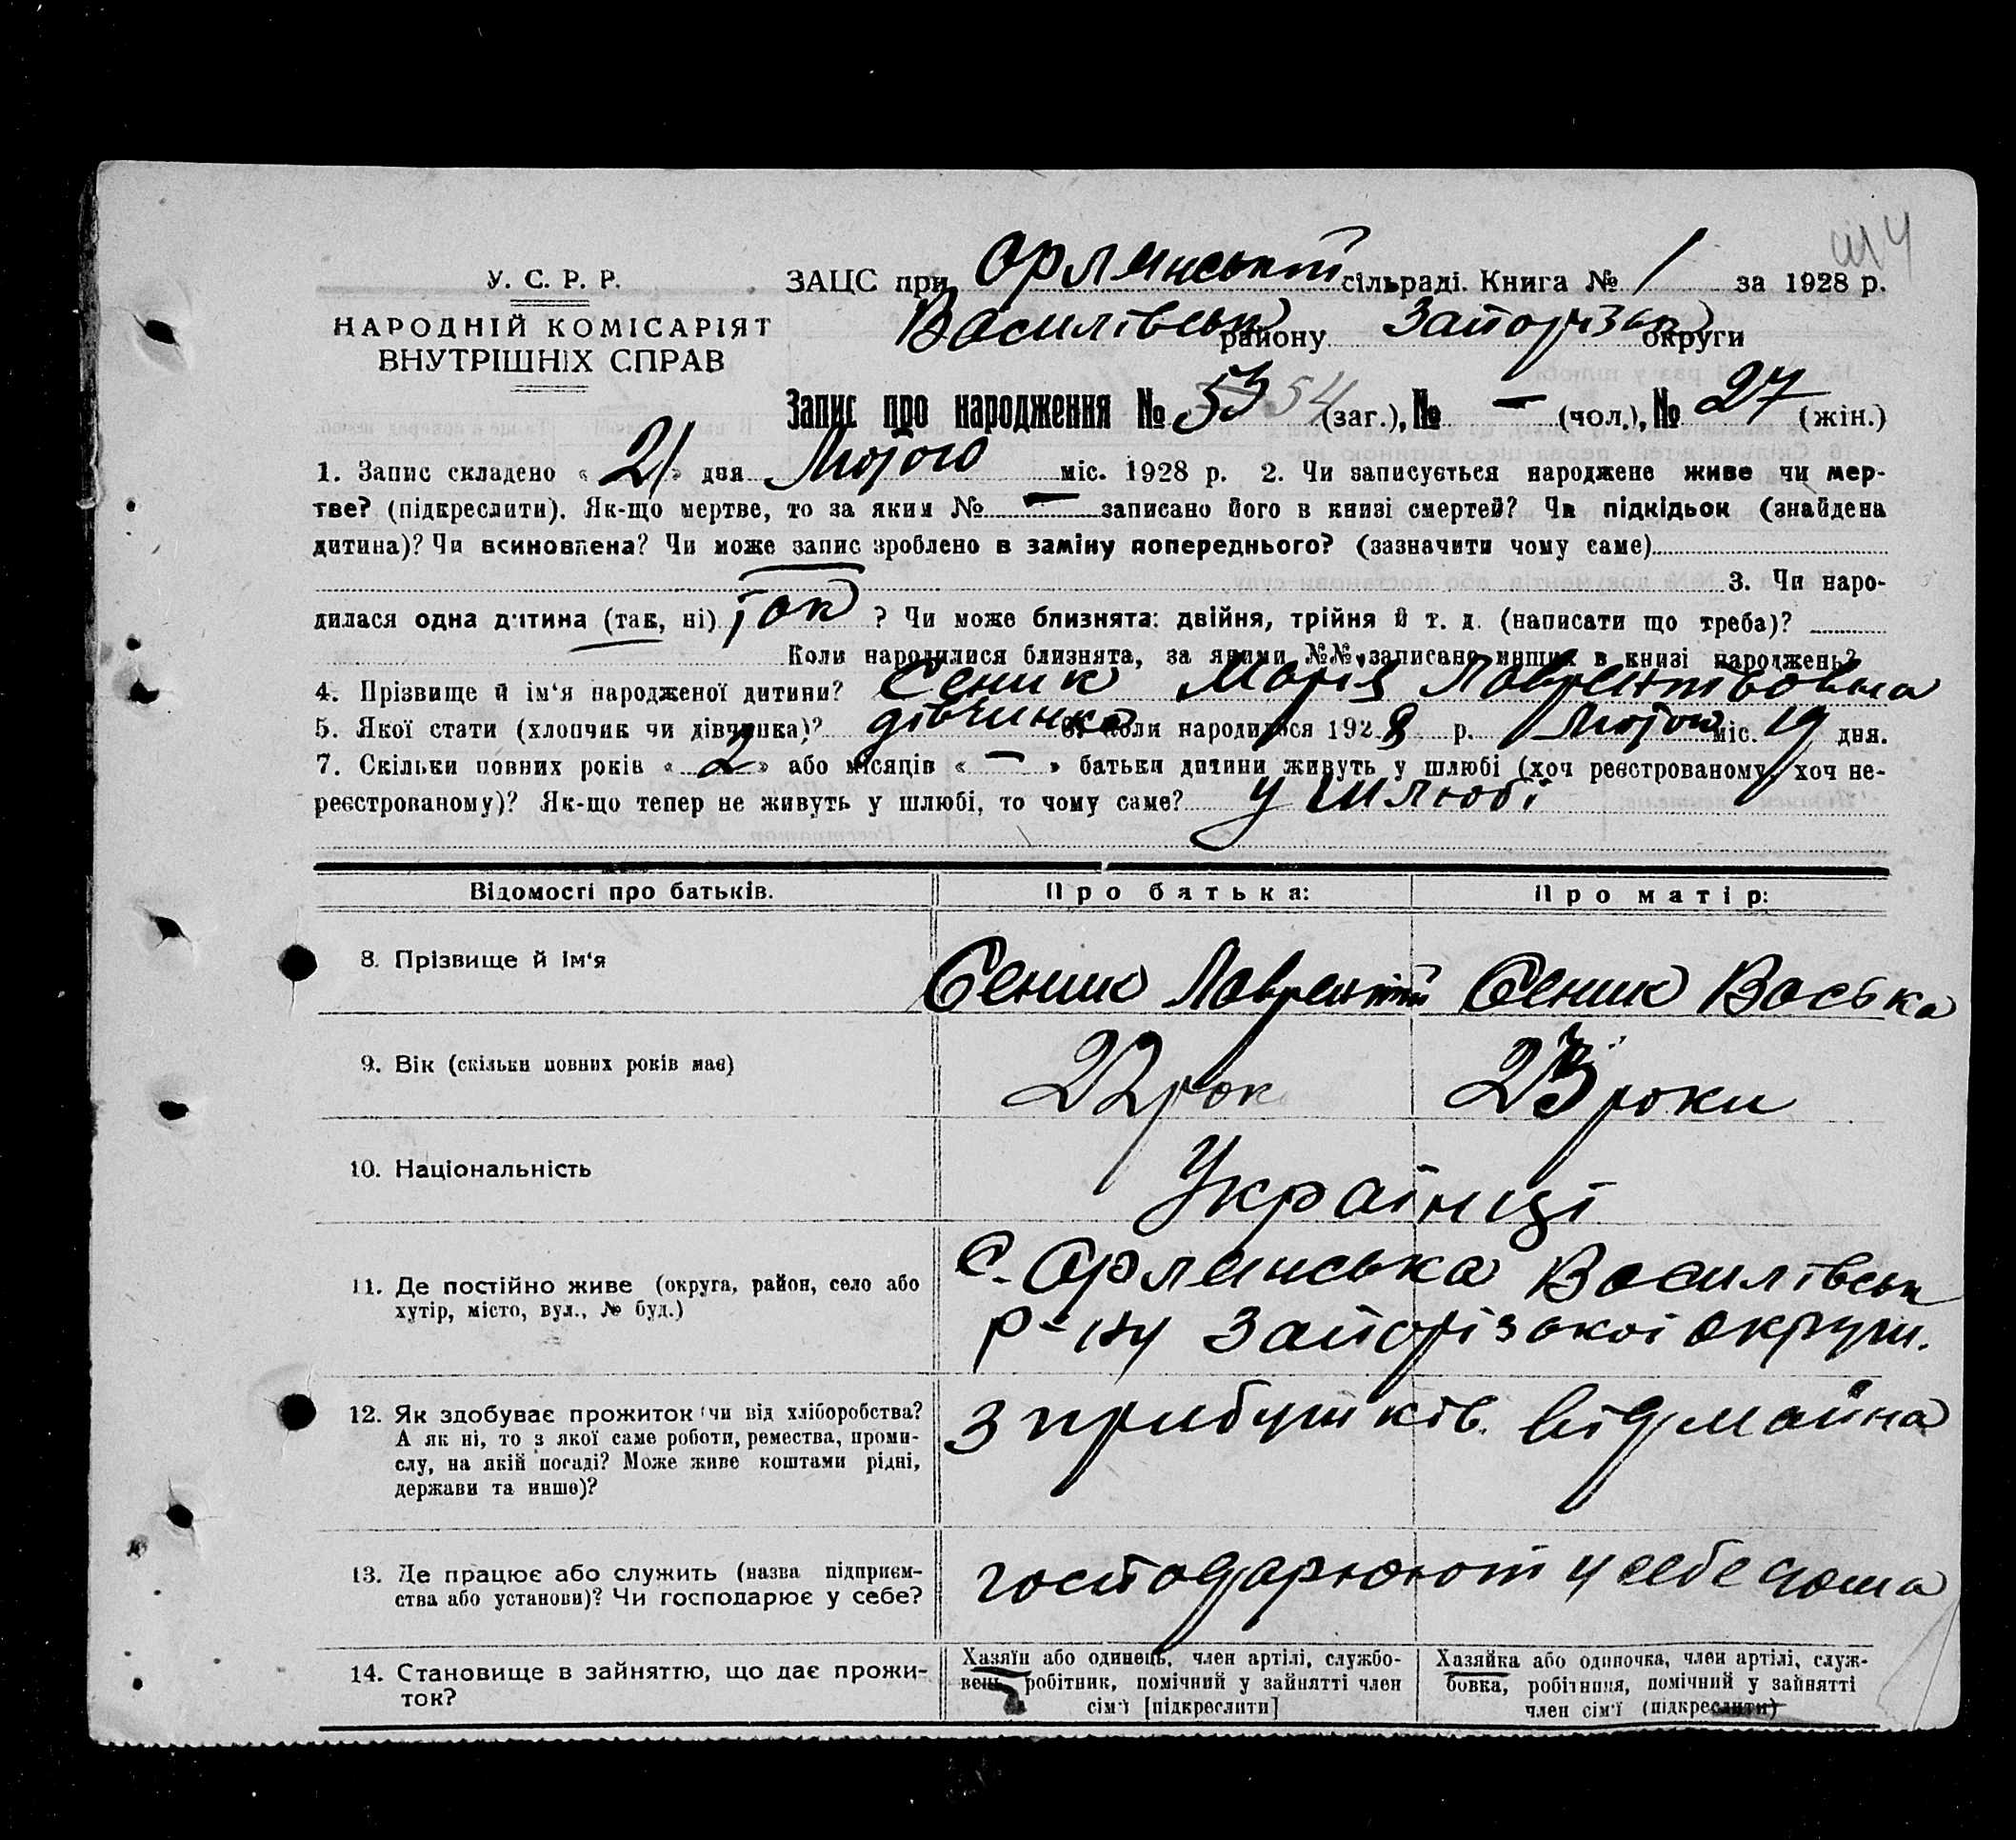 У. С. Р. Р.
НАРОДНІЙ КОМІСАРІЯТ
ВНУТРІШНІХ СПРАВ
ЗАЦС при Орлянській сільраді. Книга № 1 за 1928 р.
Василівськ району Запорізьк округи
Запис про народження № 53 54 (заг.), № — (чол.), № 27 (жін.)
1. Запис складено «21» дня Лютого міс. 1928 р. 2. Чи записується народжене живе чи мер-
тве? (підкреслити). Як-що мертве, то за яким № — записано його в книзі смертей? Чи підкідьок (знайдена
дитина)? Чи всиновлена? Чи може запис зроблено в заміну попереднього? (зазначити чому саме)
3. Чи наро-
дилася одна дитина (так, ні) так ? Чи може близнята: двійня, трійня й т. д. (написати що треба)?
Коли народилися близнята, за якими №№ записано инших в книзі народжень?
4. Прізвище й ім'я народженої дитини? Сеник Марія Лаврентівовна
5. Якої стати (хлопчик чи дівчинка)? дівчинка 6. Коли народилося 1928 р. Лютого міс. 19 дня.
7. Скільки повних років «2» або місяців «—» батьки дитини живуть у шлюбі (хоч реєстрованому, хоч не-
реєстрованому)? Як-що тепер не живуть у шлюбі, то чому саме? у шлюбі
Відомості про батьків. Про батька: Про матір:
8. Прізвище й ім'я Сеник Лаврентій Сеник Васька
9. Вік (скільки повних років має) 22 рок 23 роки
10. Національність Українці
11. Де постійно живе (округа, район, село або
хутір, місто, вул., № буд.)
С. Орлянська Василівськ
р-ну Запорізької округи.
12. Як здобуває прожиток чи від хліборобства?
А як ні, то з якої саме роботи, ремества, проми-
слу, на якій посаді? Може живе коштами рідні,
держави та инше)?
З прибутків від майна
13. Де працює або служить (назва підприєм-
ства або установи)? Чи господарює у себе?
господарюють у себе дома
14. Становище в зайняттю, що дає прожи-
ток?
Хазяїн або одинець, член артілі, службо-
вець, робітник, помічний у зайнятті член
сім'ї [підкреслити]
Хазяйка або одиночка, член артілі, служ-
бовка, робітниця, помічний у зайнятті
член сім'ї (підкреслити)